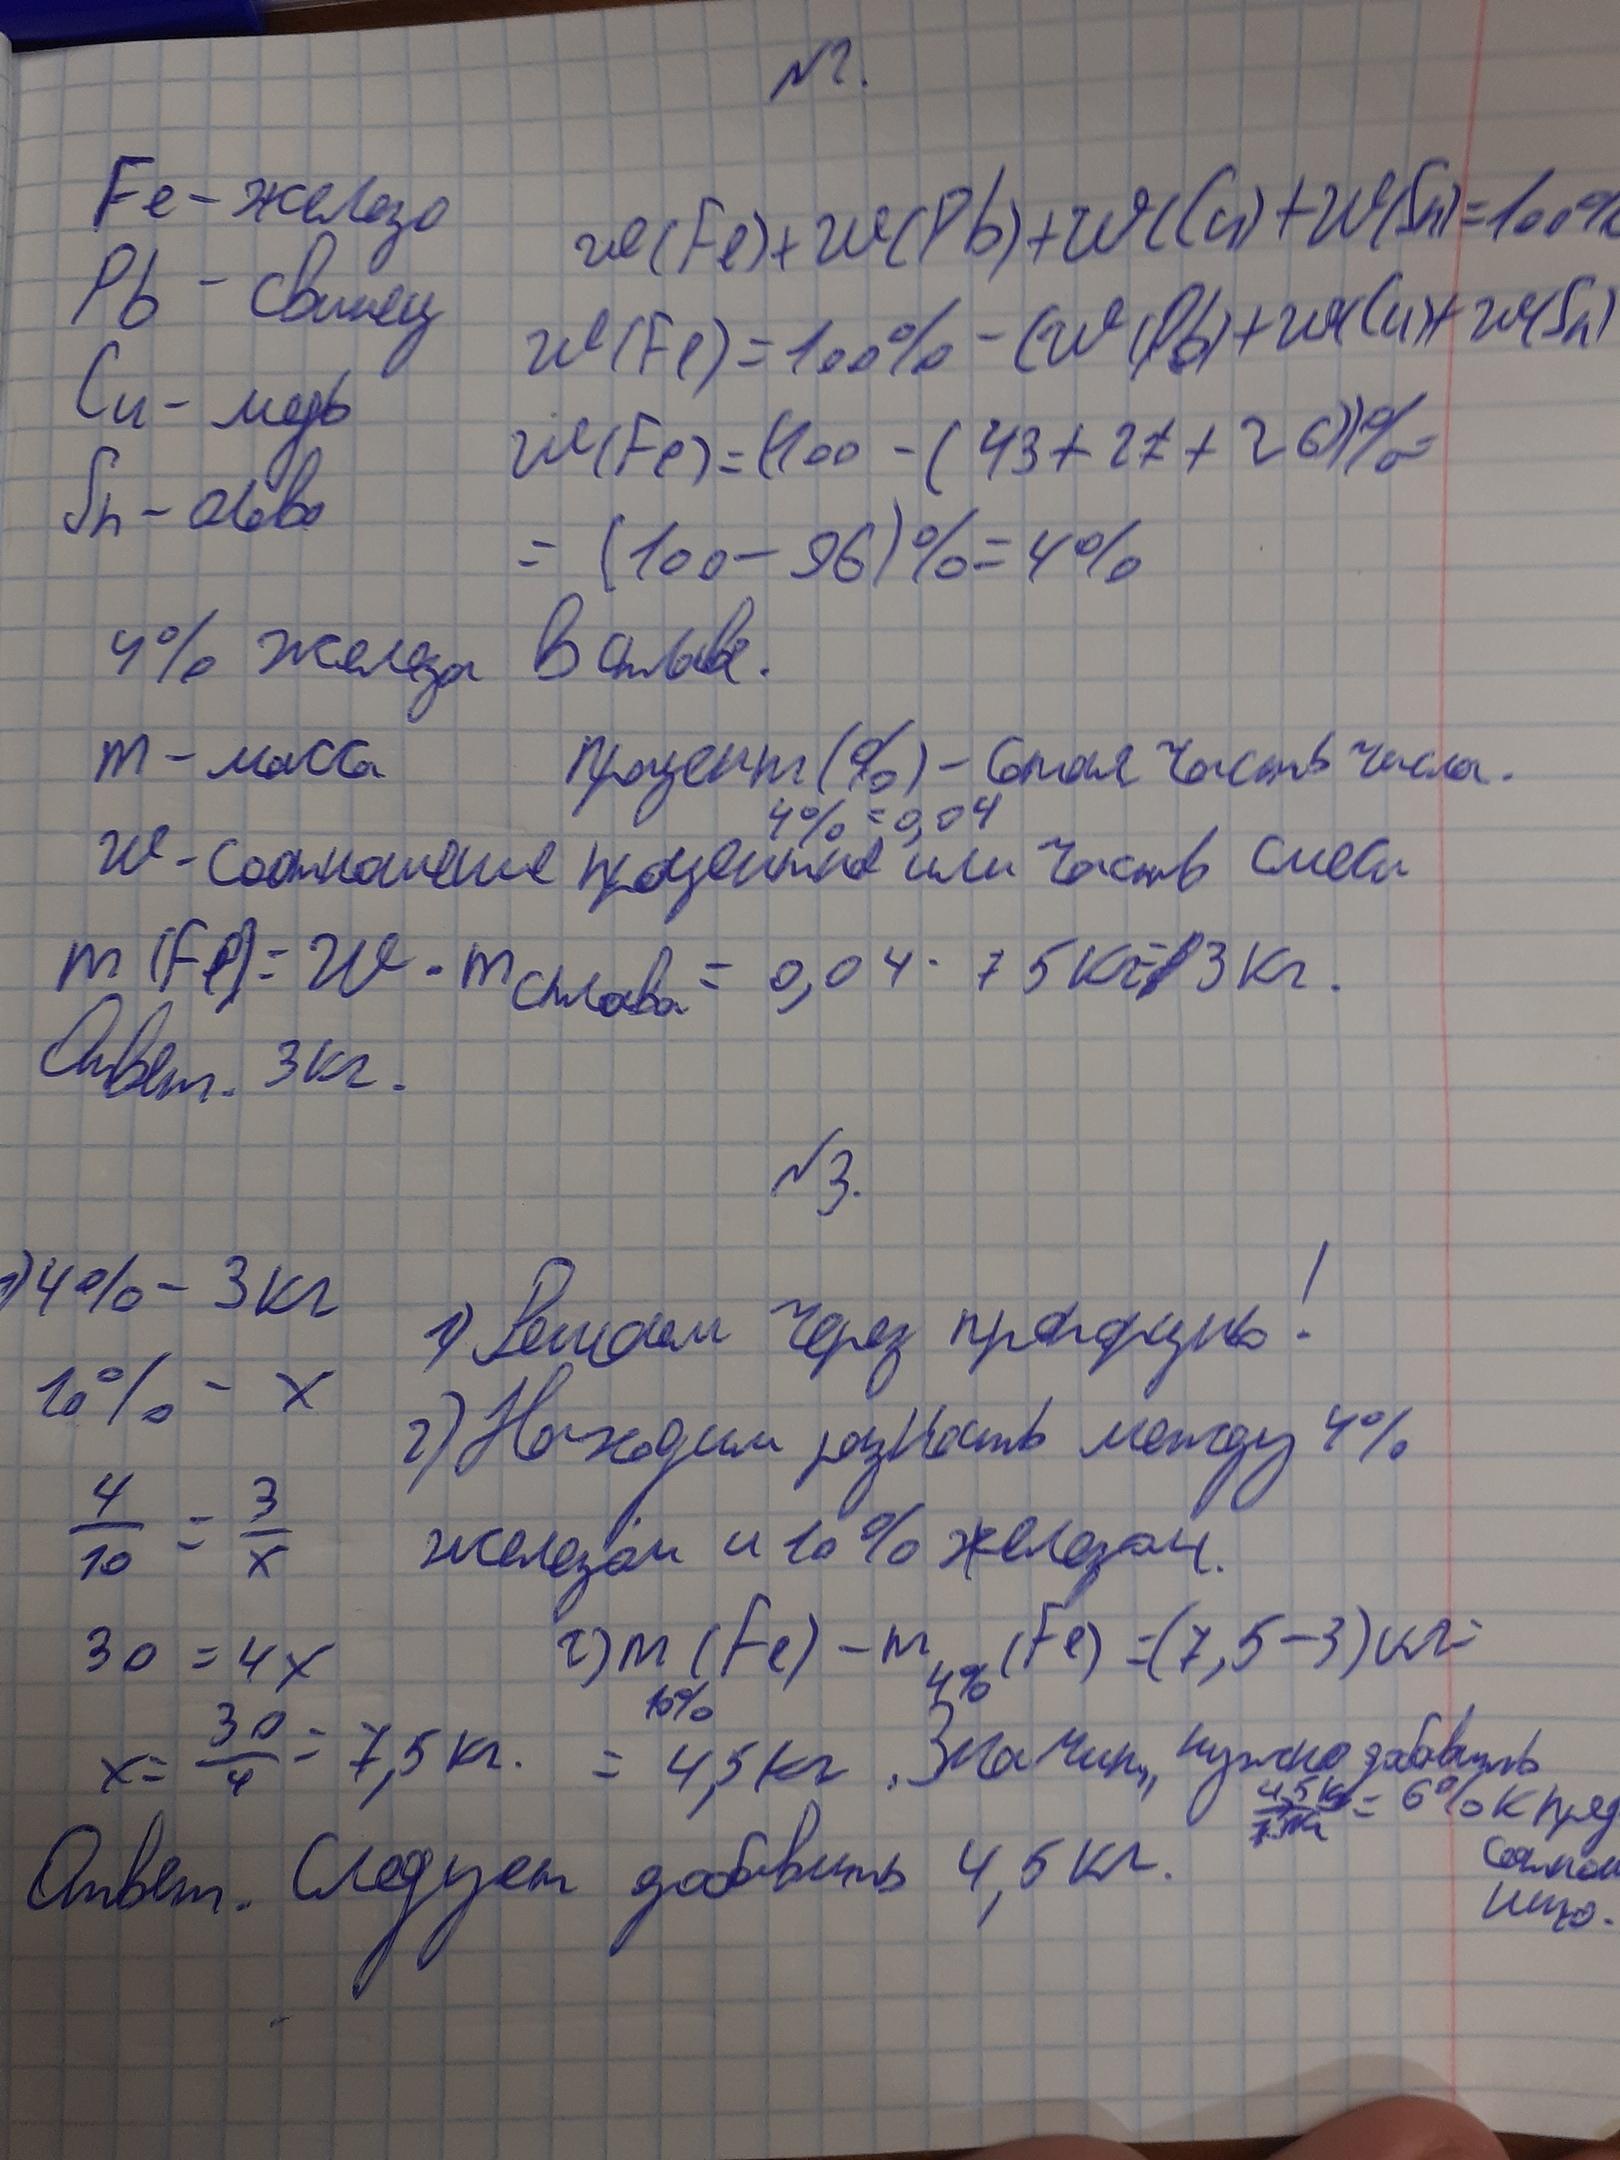 №2.
Fe - железо
w(Fe)+w(Pb)+w(Cu)+w(Sn)=100%
Pb - свинец
w(Fe)=100%-(w(Pb)+w(Cu)+w(Sn)
Cu - медь
w(Fe)=(100-(43+27+26))%=
Sn - олово
=(100-96)%=4%
4% железа в сплаве.
m - масса
Процент(%) - сотая часть числа.
4%=0,04
w - соотношение процентное или часть смеси
m(Fe)=w·mсплава=0,04·75кг=3кг.
Ответ. 3кг.
№3.
1)4% - 3кг
1) Решаем через пропорцию!
10% - x
2) Находим разность между 4%
4/10 = 3/x
железом и 10% железом.
30=4x
2)m10%(Fe)-m4%(Fe)=(7,5-3)кг=
x=30/4=7,5кг.
=4,5кг. Значит, нужно добавить
= 6% к пред
Ответ. Следует добавить 4,5кг.